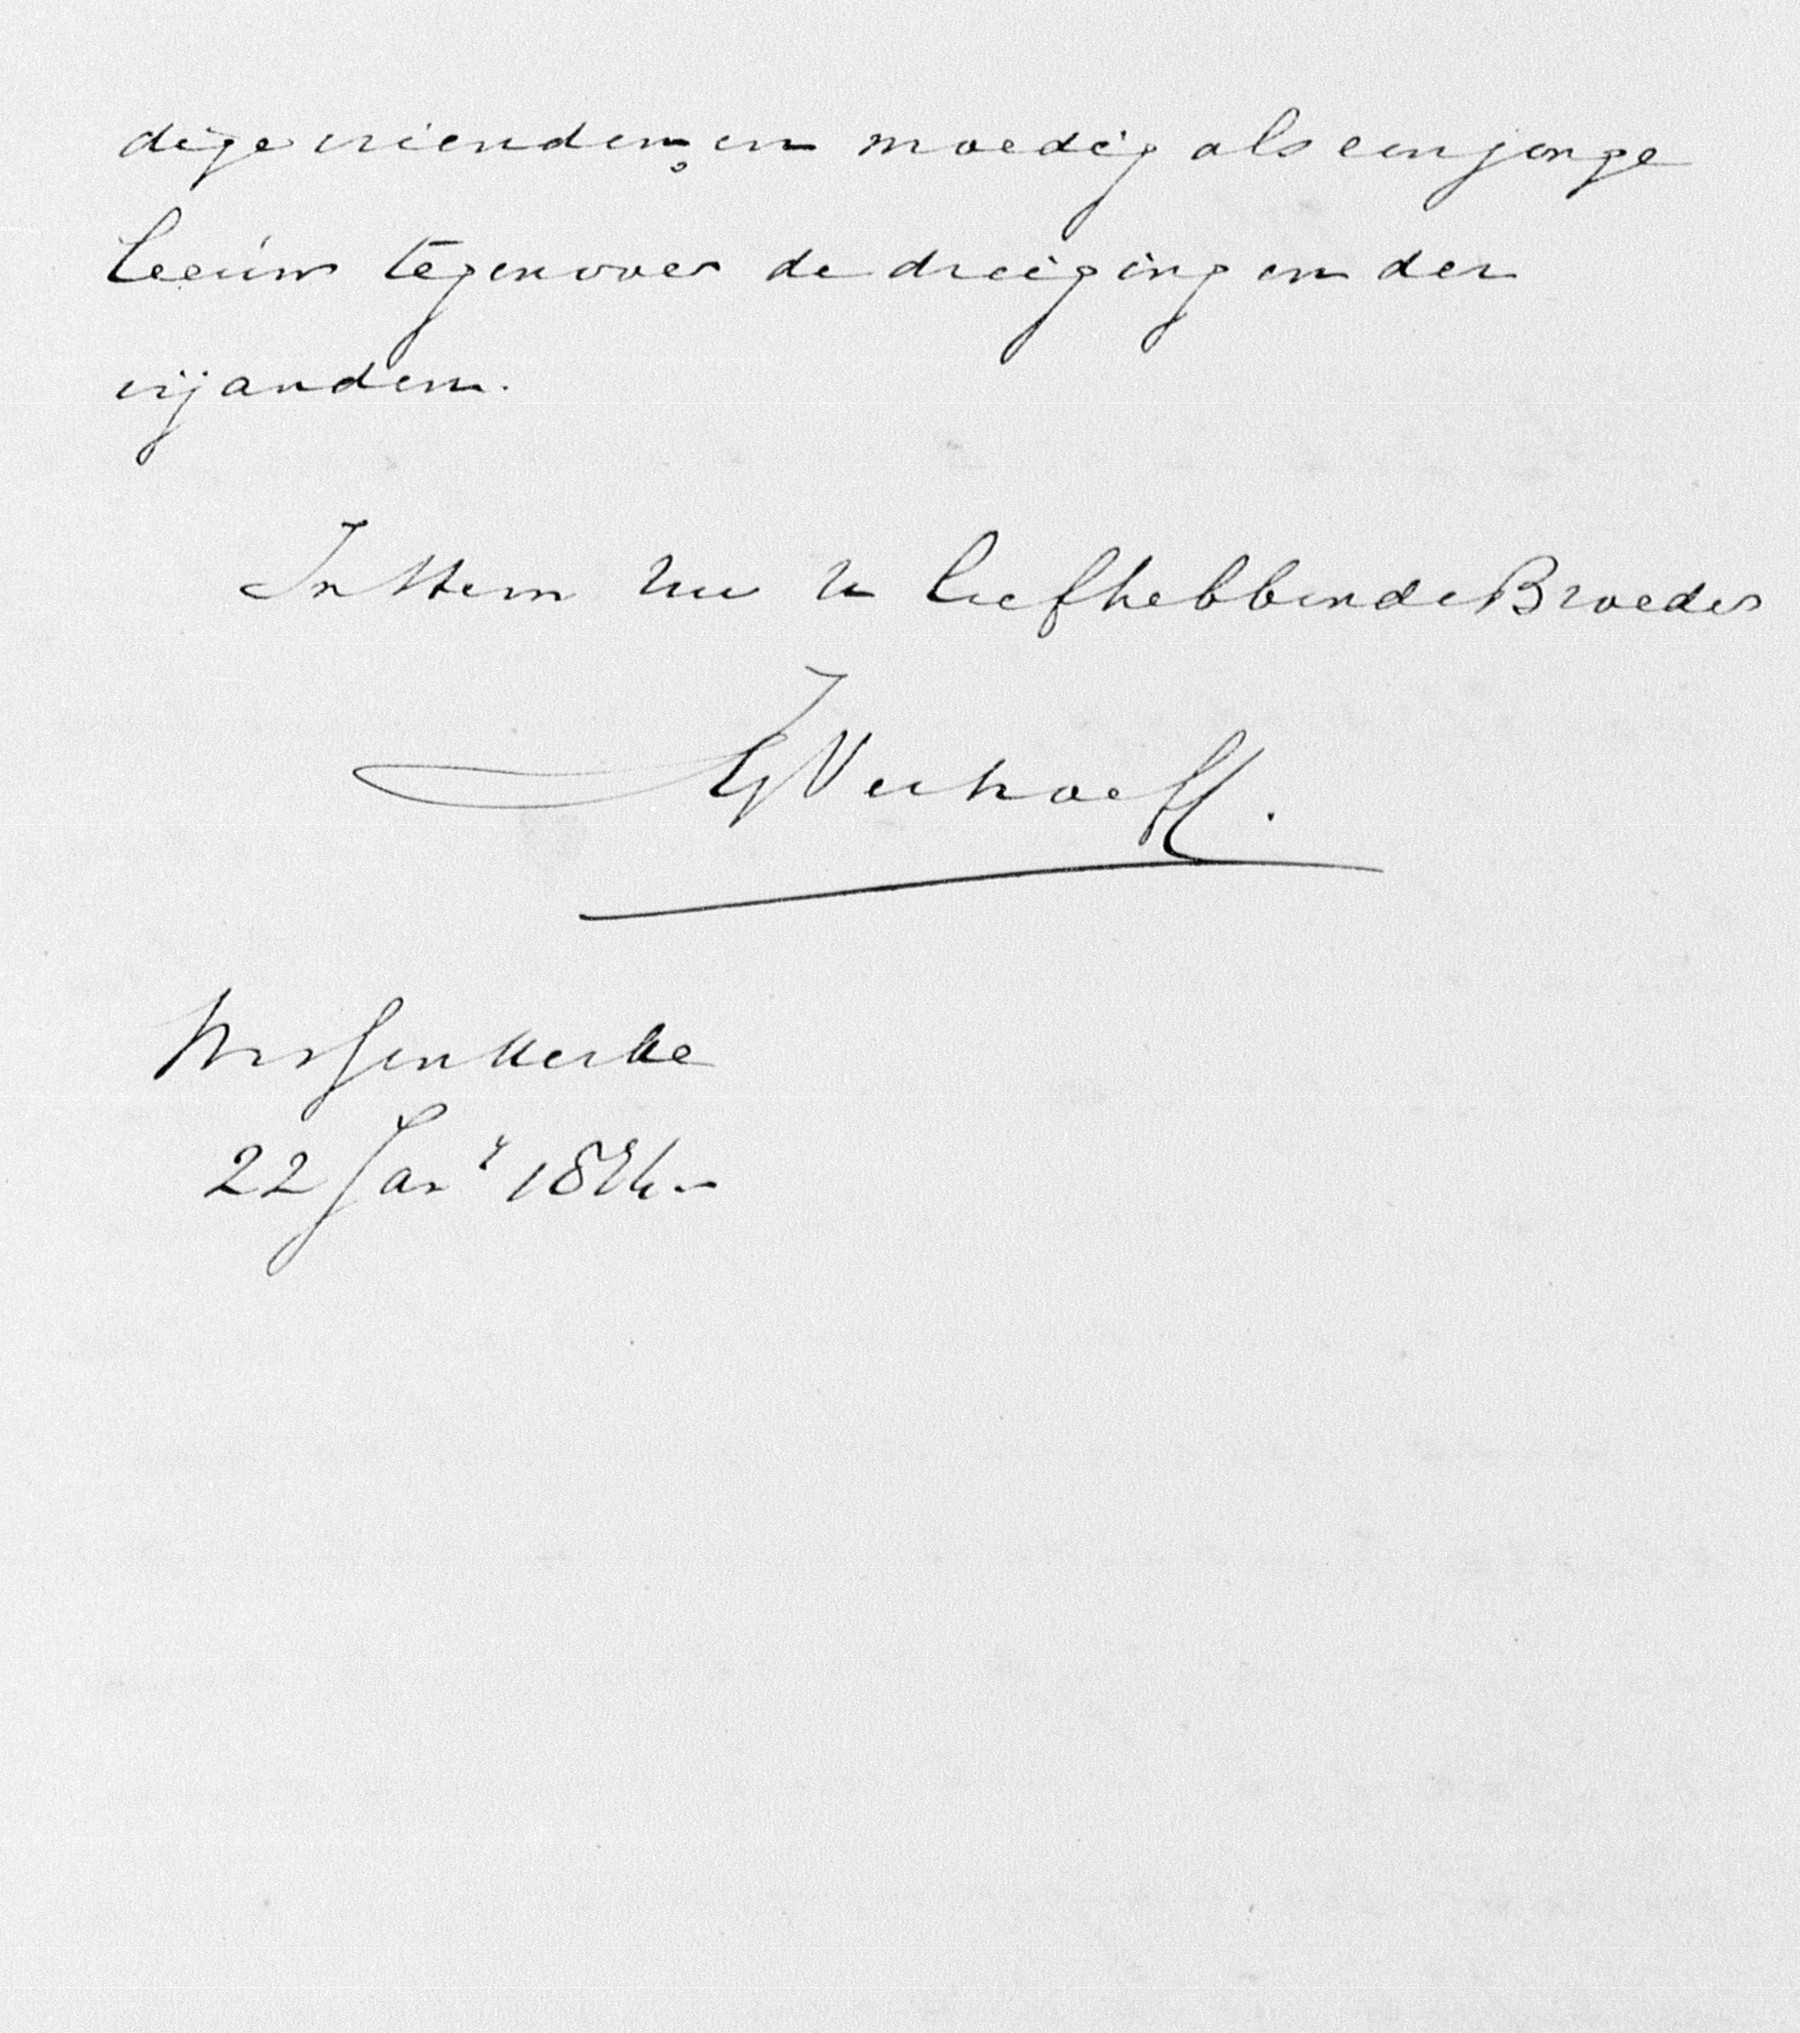 dige vrienden, en moedig als een jonge
leeuw tegenover de dreigingen der
vijanden.
In Hem Uw U liefhebbende Broeder
JGVerhoeff.
Wissenkerke
22 Jany